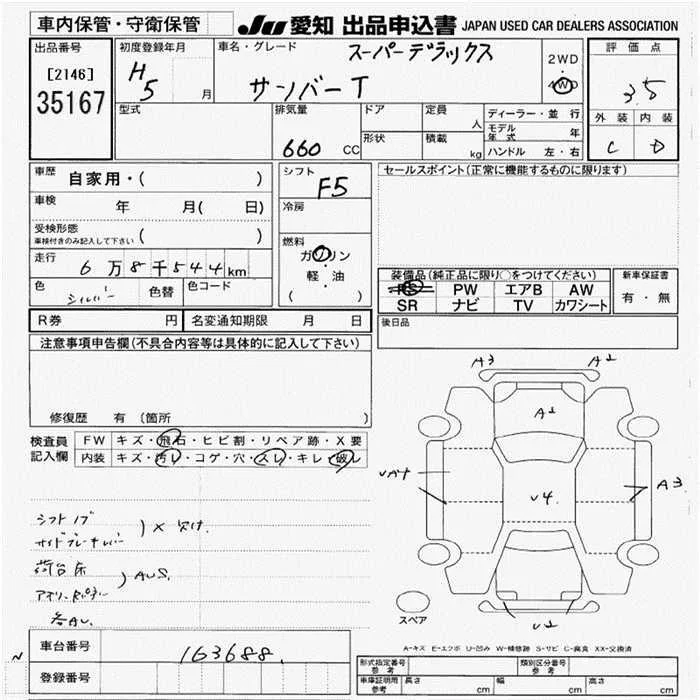 車内保管・守衛保管
JU 愛知 出品申込書 JAPAN USED CAR DEALERS ASSOCIATION
出品番号
[2146]
35167
初度登録年月
H5 月
車名・グレード
スーパーデラックス
サンバーT
2WD
・
4WD
評価点
3.5
外装 内装
C D
型式
排気量
660 CC
ドア
形状
定員
人
積載
kg
ディーラー・並行
モデル年式 年
ハンドル 左・右
車歴
自家用・( )
車検
年 月( 日)
受検形態
車検付きのみ記入して下さい ( )
走行
6万8千544km
色
シルバー
色替
色コード
シフト
F5
冷房
燃料
ガソリン
・
軽・油
( )
セールスポイント(正常に機能するものに限ります)
装備品(純正品に限り○をつけてください)
PS PW エアB AW
SR ナビ TV カワシート
新車保証書
有・無
後日品
R券 円
名変通知期限 月 日
注意事項申告欄(不具合内容等は具体的に記入して下さい)
修復歴 有 (箇所 )
検査員
記入欄
FW キズ・飛石・ヒビ割・リペア跡・X要
内装 キズ・汚レ・コゲ・穴・スレ・キレ・破レ
シフトノブ
サイドブレーキレバー
)× 欠け
荷台床
)AUS.
各AU.
A3 A2
A1
U4.
A3
U2
スペア
A-キズ E-エクボ U-凹み W-補修跡 S-サビ C-腐食 XX-交換済
車台番号
163688
登録番号
型式指定番号
参考
類別区分番号
参考
車庫証明用
参考
長さ cm
幅 cm
高さ cm